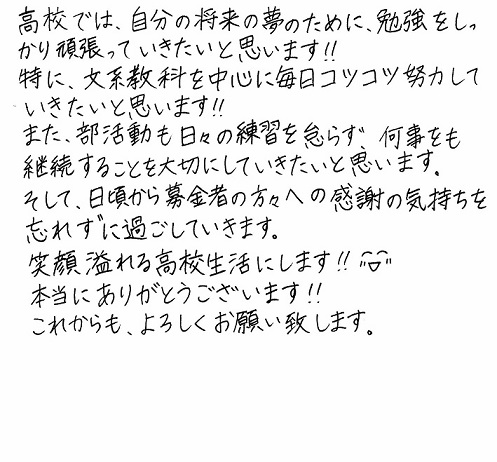 高校では、自分の将来の夢のために、勉強をしっ
かり頑張っていきたいと思います!!
特に、文系教科を中心に毎日コツコツ努力して
いきたいと思います!!
また、部活動も日々の練習を怠らず、何事をも
継続することを大切にしていきたいと思います。
そして、日頃から募金者の方々への感謝の気持ちを
忘れずに過ごしていきます。
笑顔溢れる高校生活にします!!
本当にありがとうございます!!
これからも、よろしくお願い致します。